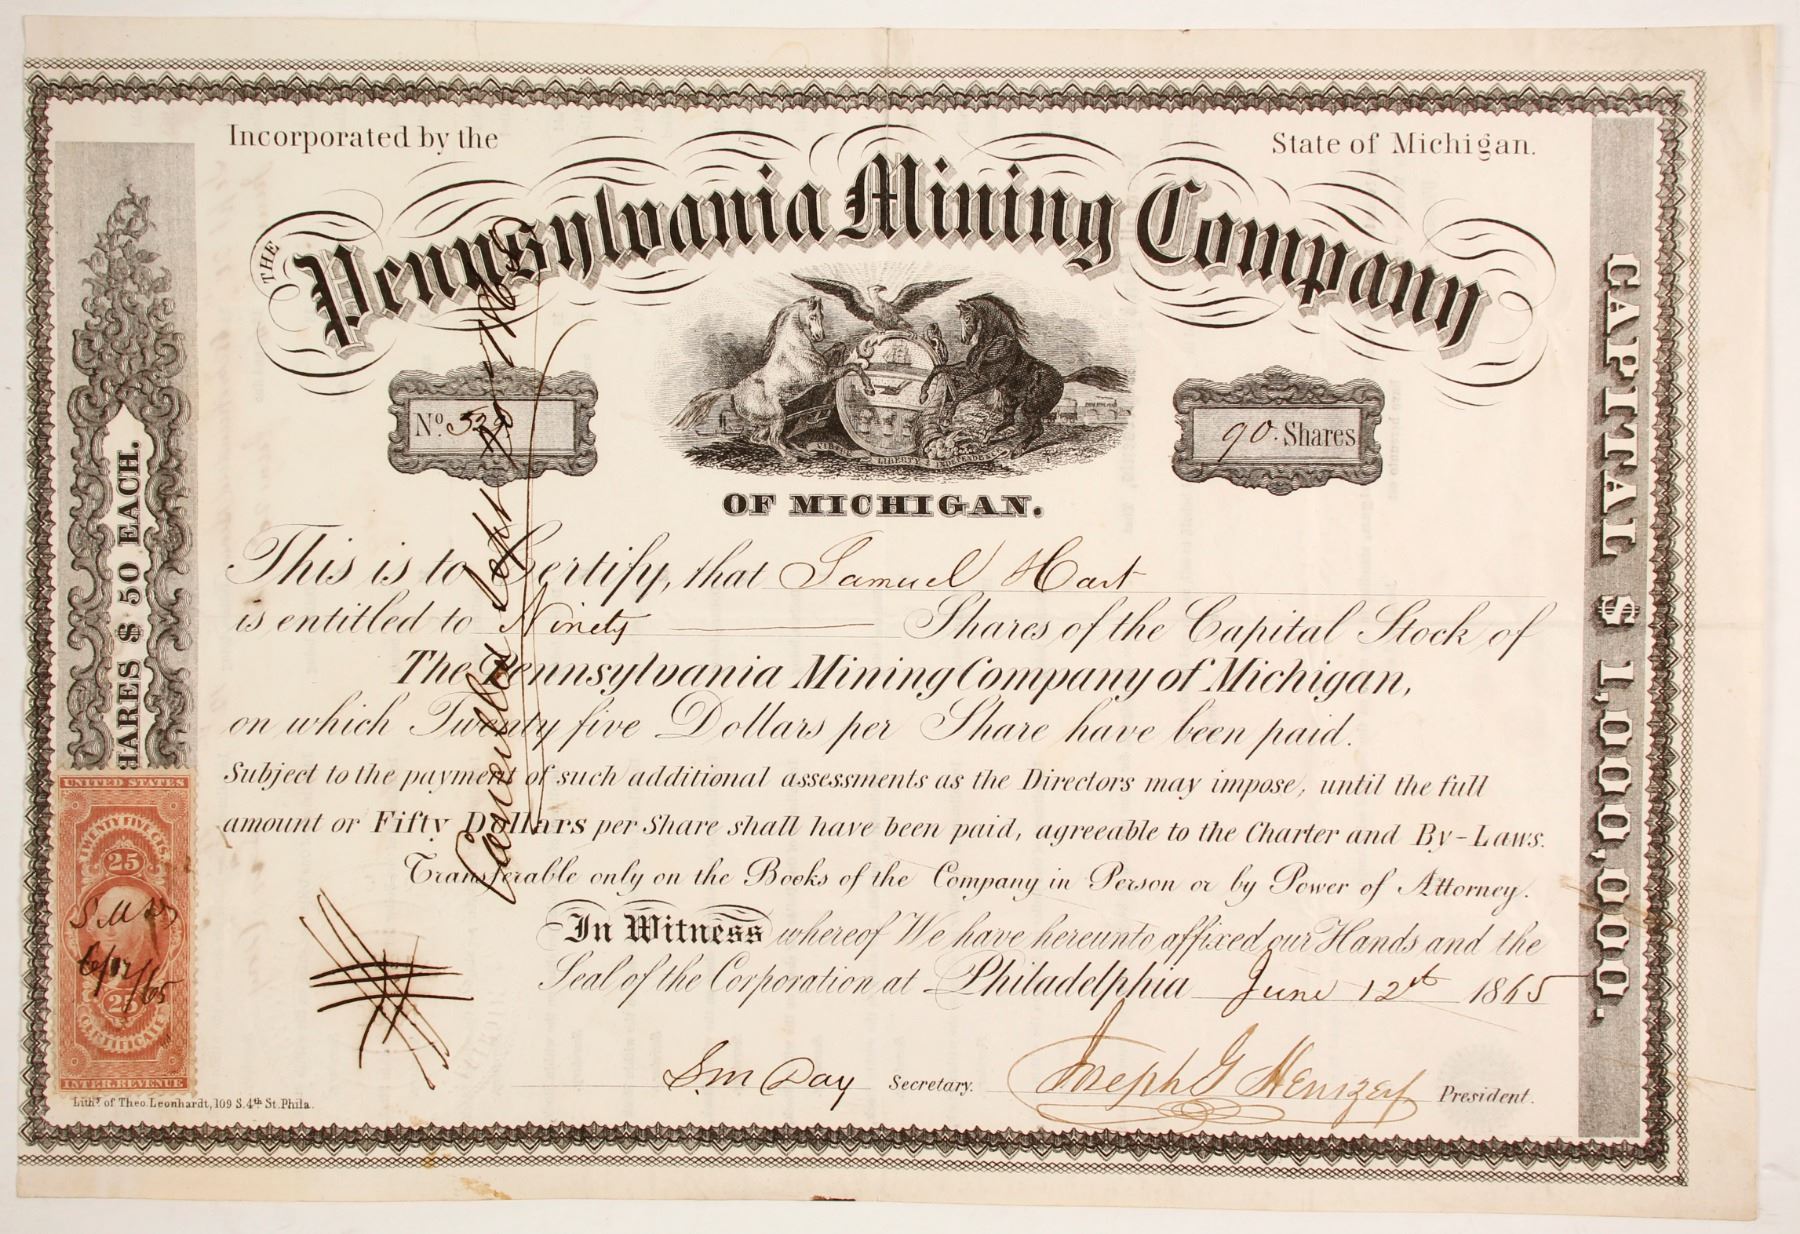 Incorporated by the State of Michigan.
THE Pennsylvania Mining Company
No. 
90. Shares
VIRTUE LIBERTY & INDEPENDENCE
OF MICHIGAN.
This is to Certify, that Samuel Hart
is entitled to Ninety Shares of the Capital Stock of
The Pennsylvania Mining Company of Michigan,
on which Twenty five Dollars per Share have been paid.
Subject to the payment of such additional assessments as the Directors may impose, until the full
amount or Fifty Dollars per Share shall have been paid, agreeable to the Charter and By-Laws.
Transferable only on the Books of the Company in Person or by Power of Attorney.
In Witness whereof We have hereunto affixed our Hands and the
Seal of the Corporation at Philadelphia June 12th 1865
Sm Day Secretary.
Joseph G President.
Cancelled Sept
HARES $ 50 EACH.
CAPITAL $ 1,000,000.
UNITED STATES
TWENTY FIVE CTS.
25
6/12/65
25
CERTIFICATE
INTER. REVENUE
Lith. of Theo. Leonhardt, 109 S. 4th St. Phila.